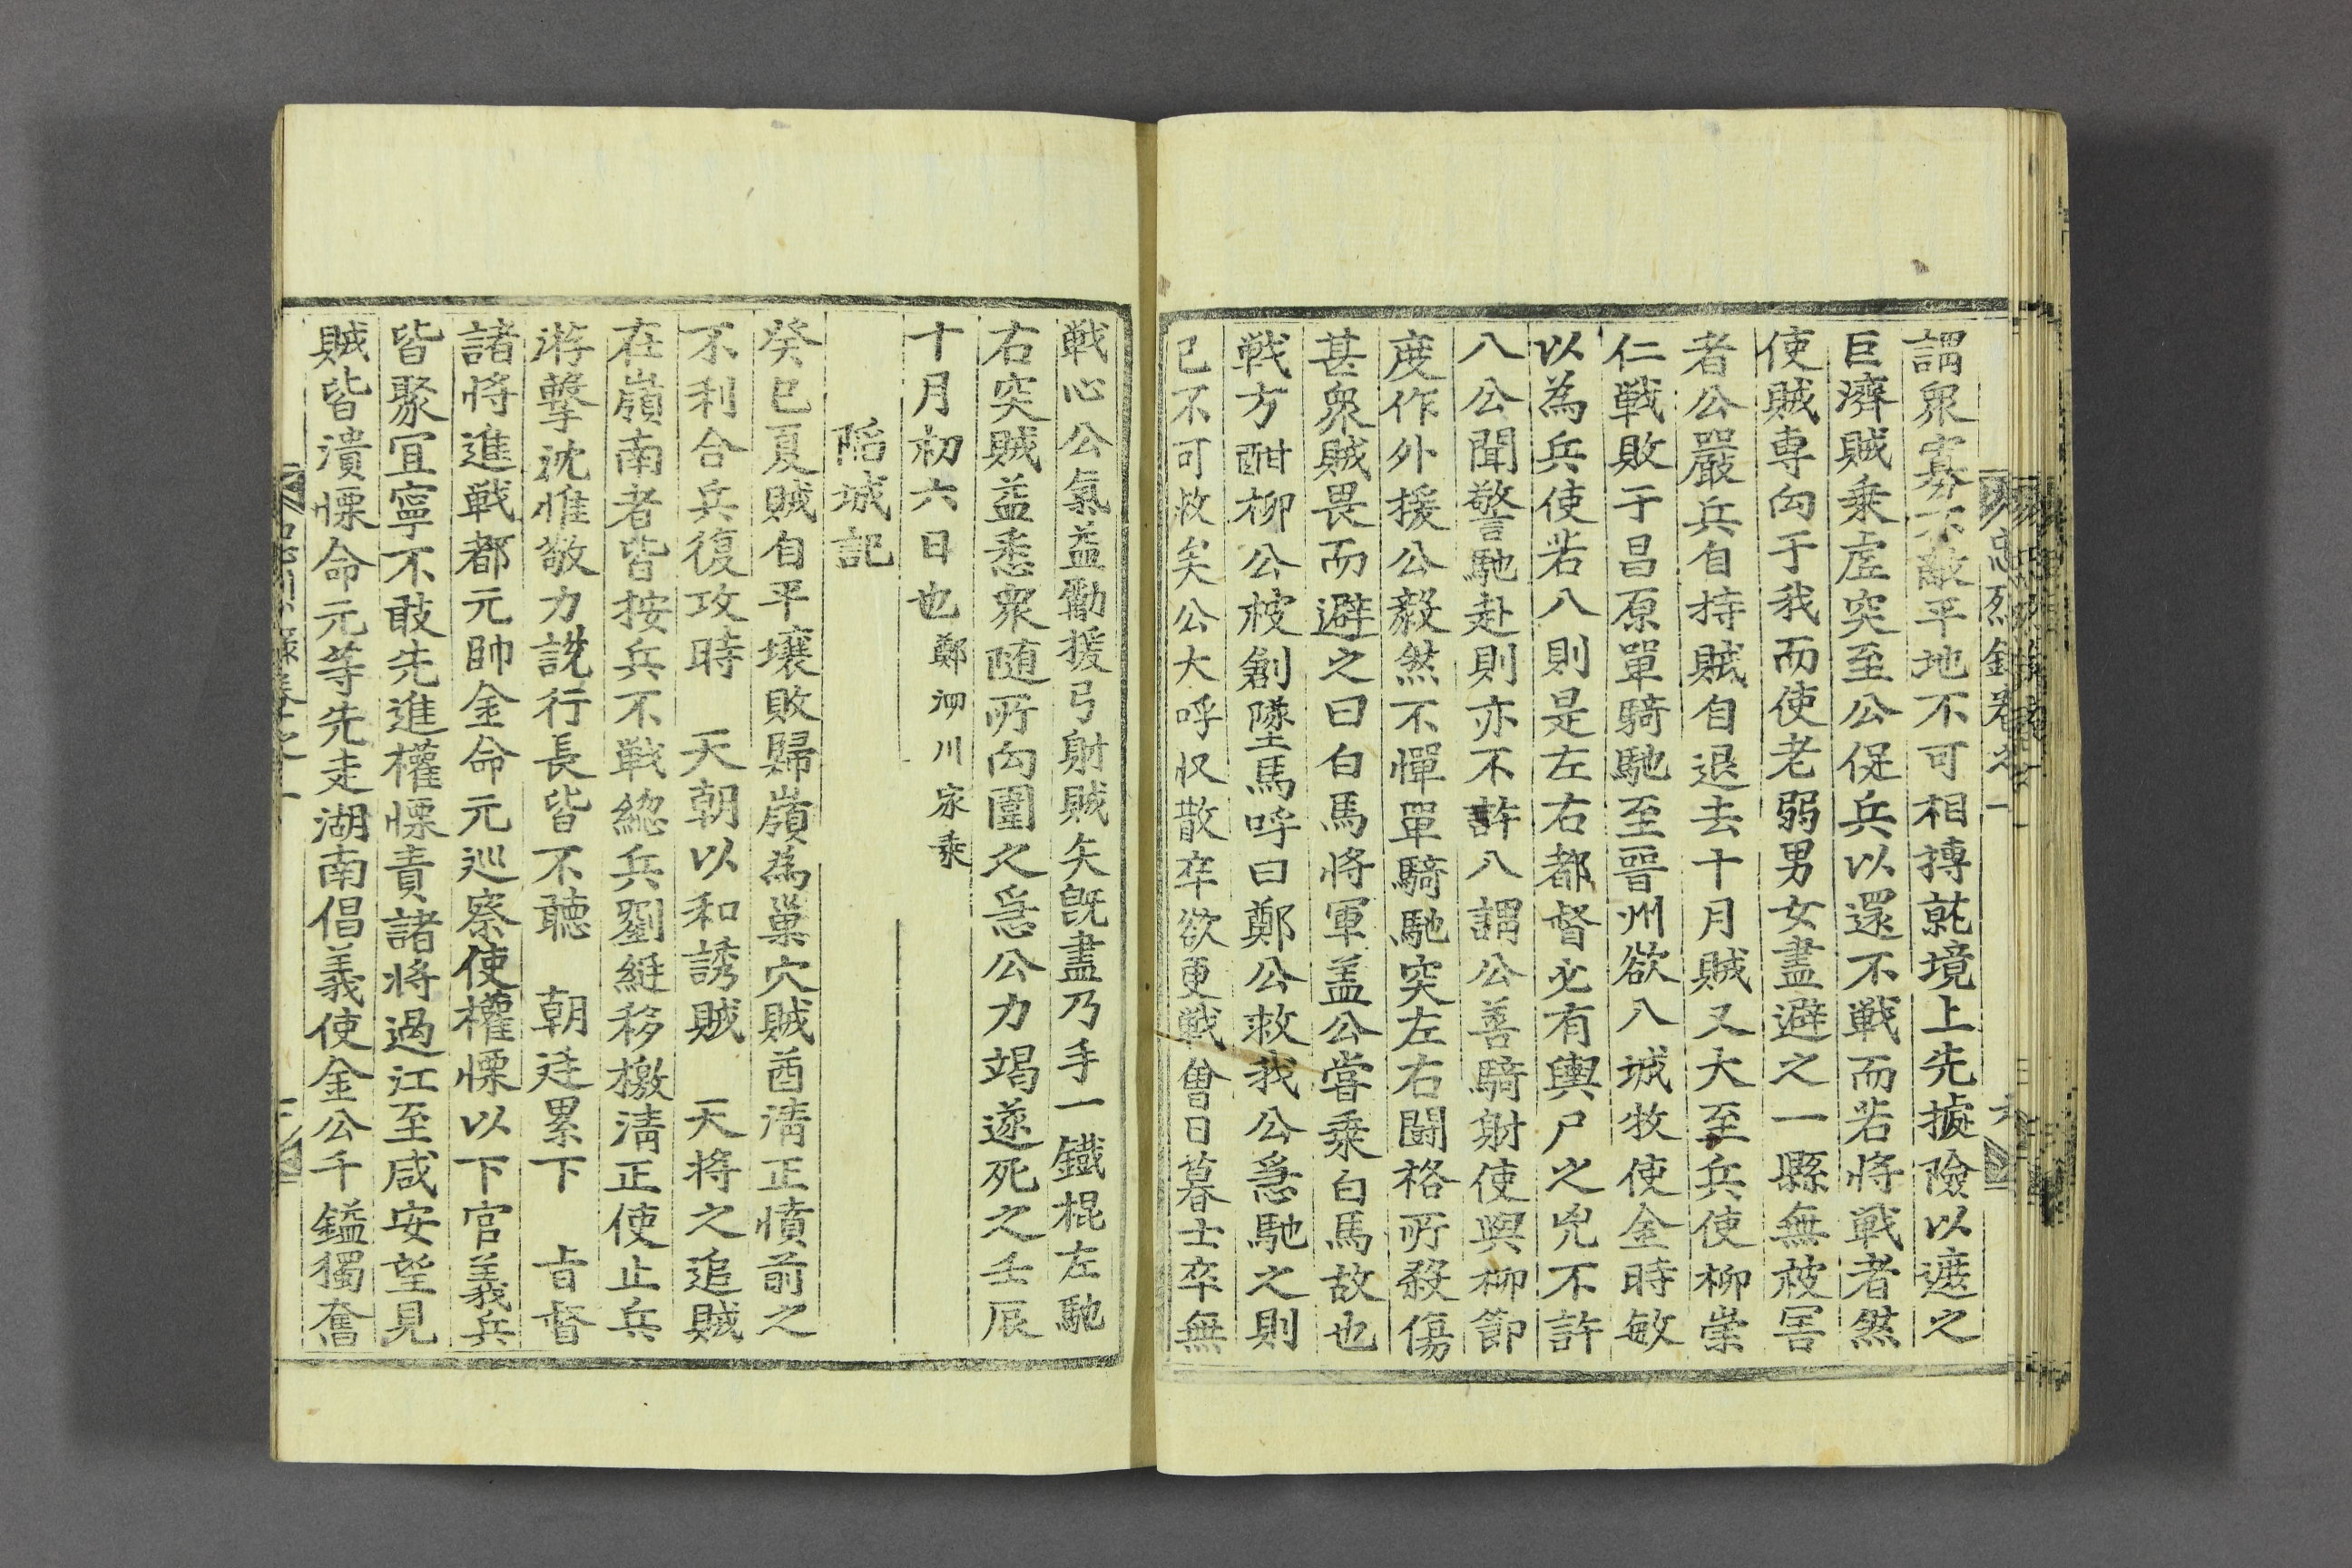 謂衆寡不敵平地不可相搏就境上先㨿險以遮之
巨濟賊乘虛突至公促兵以還不戰而若將戰者然
使賊專向于我而使老弱男女盡避之一縣無被害
者公嚴兵自持賊自退去十月賊又大至兵使柳崇
仁戰敗于昌原單騎馳至晋州欲入城牧使金時敏
以為兵使若入則是左右都督必有輿尸之兇不許
入公聞警馳赴則亦不許入謂公善騎射使與柳節
度作外援公毅然不憚單騎馳突左右鬪格所殺傷
甚衆賊畏而避之曰白馬將軍盖公嘗乘白馬故也
戰方酣柳公被創墜馬呼曰鄭公救我公急馳之則
已不可救矣公大呼收散卒欲更戰會日暮士卒無
忠烈錄卷之一
戰心公氣益勵援弓射賊矢旣盡乃手一鐵棍左馳
右突賊益悉衆随所向圍之急公力竭遂死之壬辰
十月初六日也鄭泗川家乘
陷城記
癸巳夏賊自平壤敗歸嶺為巢穴賊酋淸正憤前之
不利合兵復攻時 天朝以和誘賊 天將之追賊
在嶺南者皆按兵不戰緫兵劉綎移檄淸正使止兵
游擊沈惟敬力說行長皆不聽 朝廷累下 旨督
諸將進戰都元帥金命元巡察使權慄以下官義兵
皆聚宜寧不敢先進權慄責諸將過江至咸安望見
賊皆潰慄命元等先走湖南倡義使金公千鎰獨奮